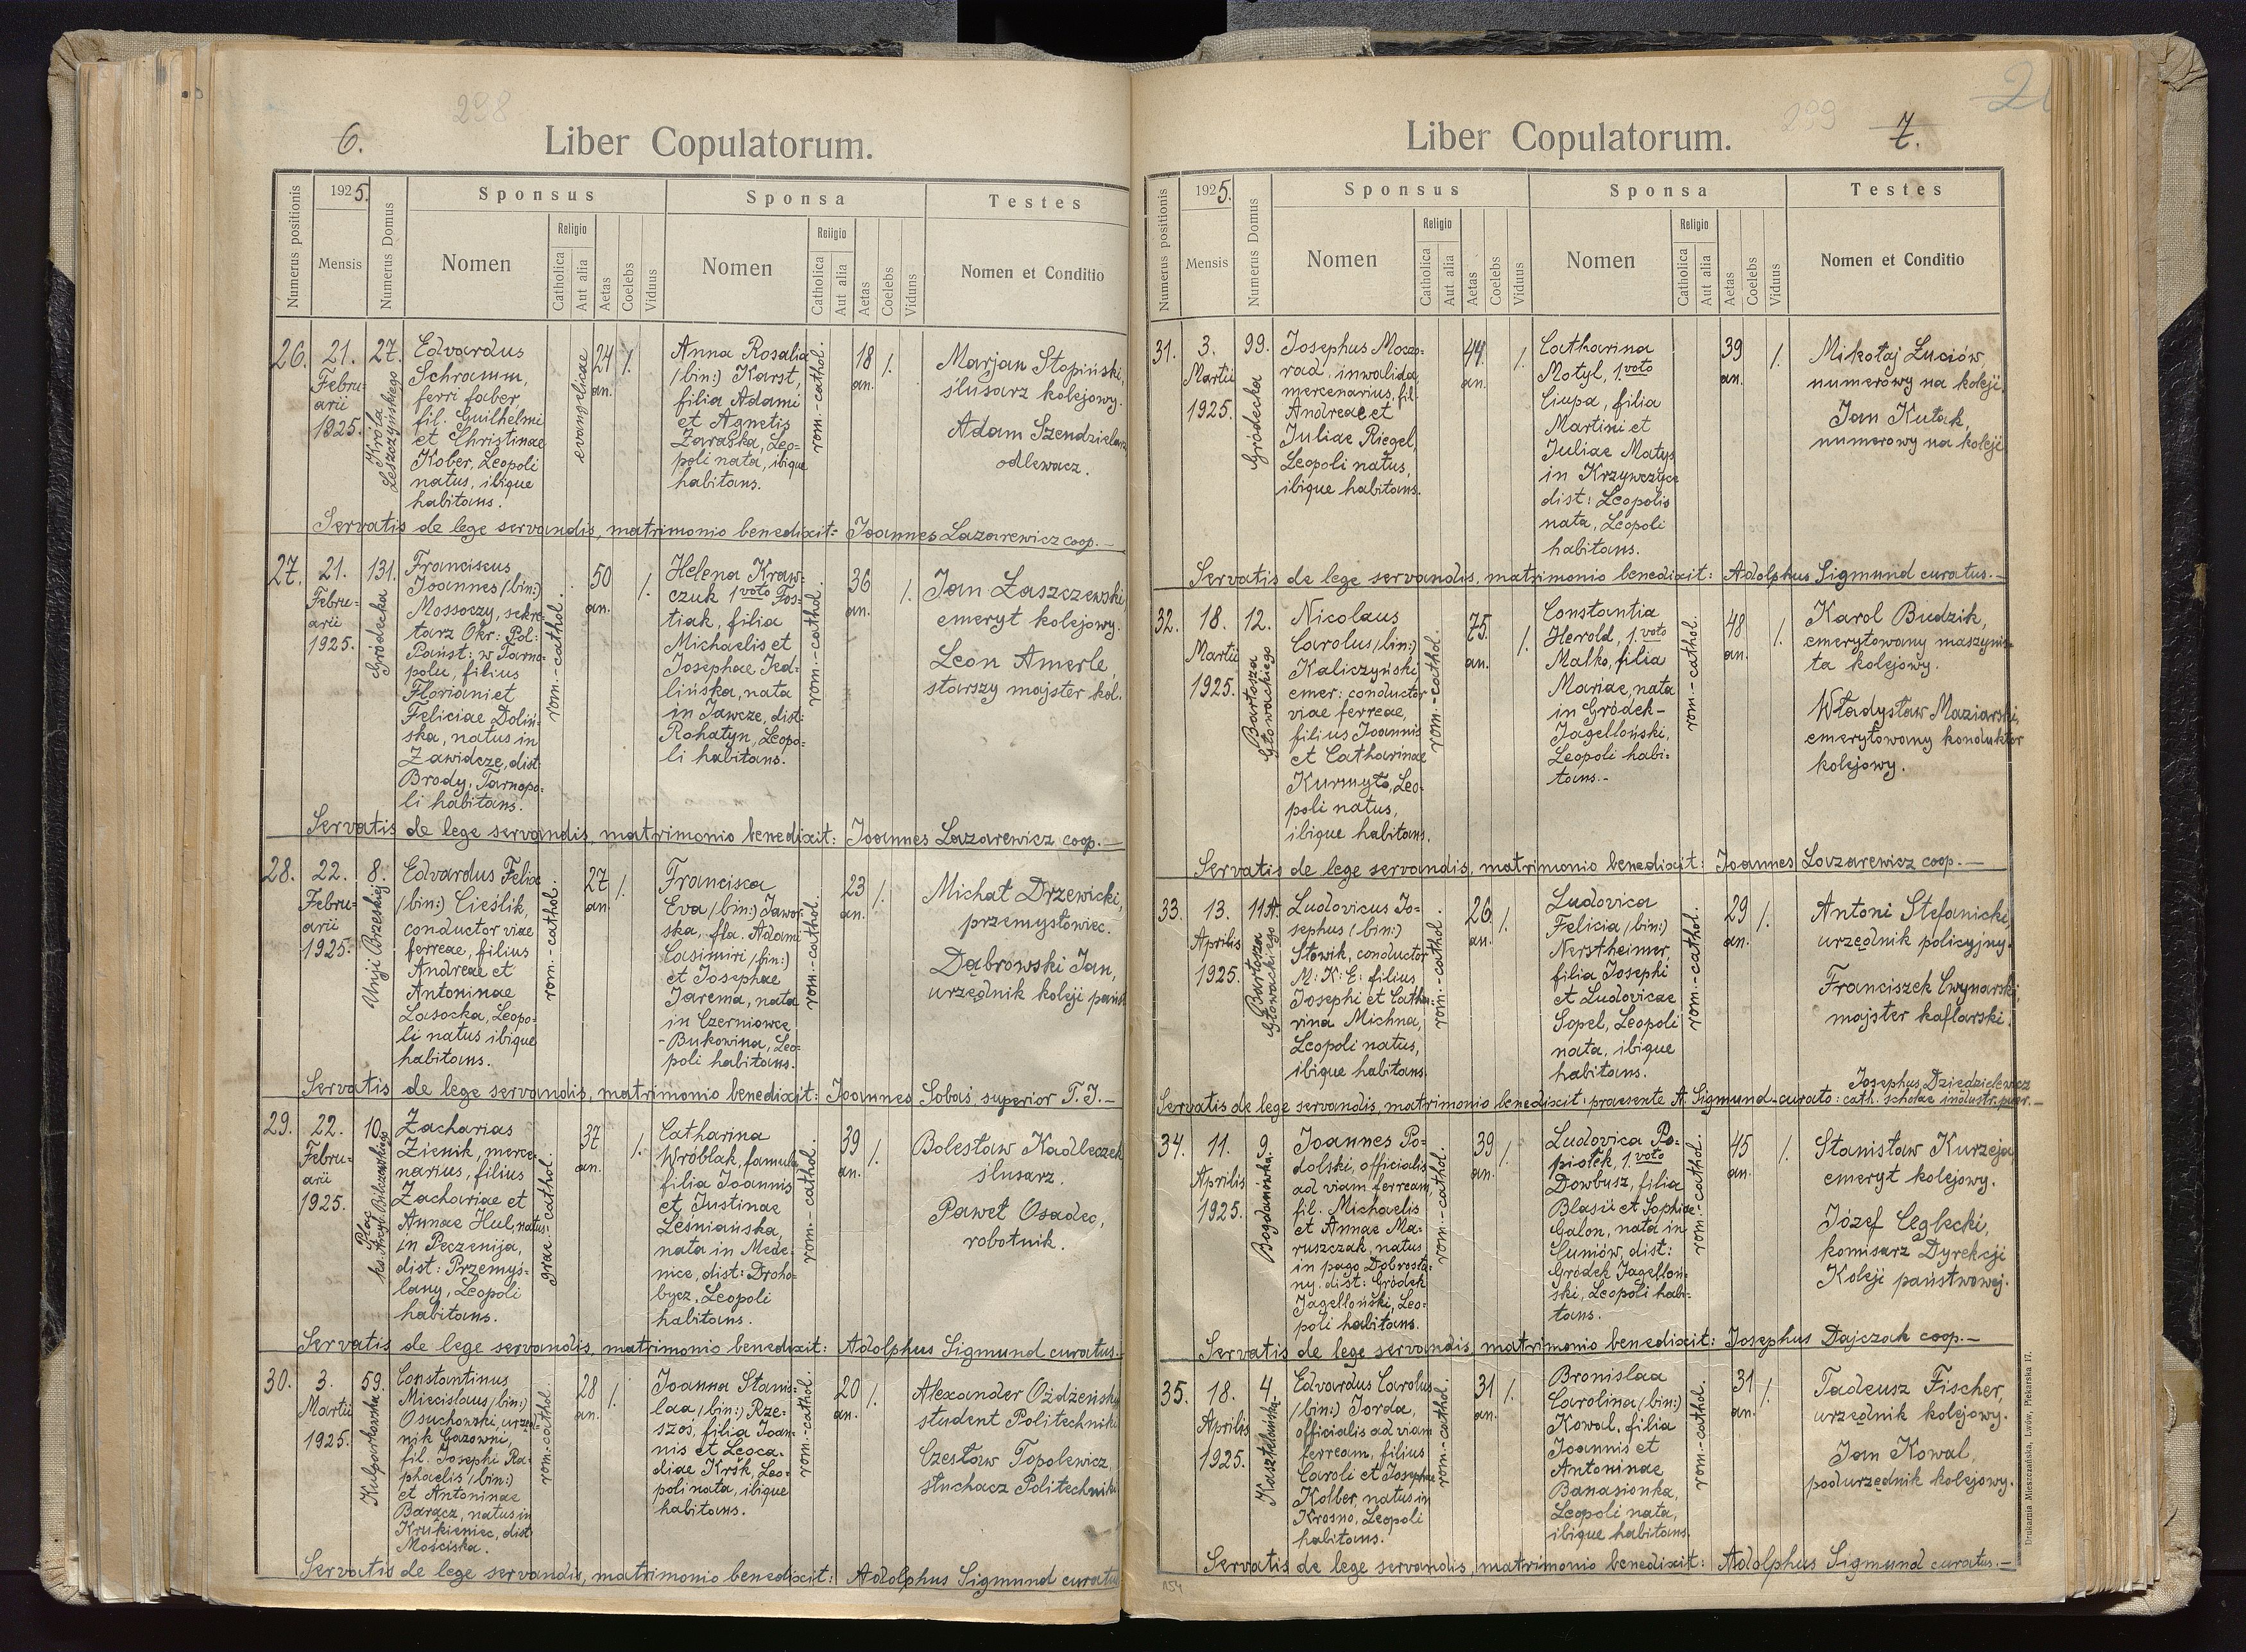 298
6.
Liber Copulatorum.
Numerus positionis
1925.
Mensis
Numerus Domus
Sponsus
Nomen
Religio
Catholica
Aut alia
Aetas
Coelebs
Viduus
Sponsa
Nomen
Religio
Catholica
Aut alia
Aetas
Coelebs
Viduus
Testes
Nomen et Conditio
26.
21.
Febru-
arii
1925.
27.
Króla
Leszczyńskiego
Edvardus
Schramm,
ferri faber
fil. Guilhelmi
et Christinae
Kober, Leopoli
natus, ibique
habitans.
evangelicae
24
an.
1.
Anna Rosalia
(bin:) Karst,
filia Adami
et Agnetis
Zaraska, Leo-
poli nata, ibique
habitans.
rom.-cathol.
18
an.
1.
Marjan Stopiński,
ślusarz kolejowy.
Adam Szendzielarz
odlewacz.
Servatis de lege servandis, matrimonio benedixit: Joannes Lazarewicz coop.-
27.
21.
Febru-
arii
1925.
131.
Gródecka
Franciscus
Joannes (bin:)
Mossoczy, sekre-
tarz Okr: Pol:
Państ: w Tarno-
polu, filius
Floriani et
Feliciae Doliń-
ska, natus in
Zawidcze, dist:
Brody, Tarnopo-
li habitans.
rom.-cathol.
50
an.
1.
Helena Kraw-
czuk 1voto Fos-
tiak, filia
Michaelis et
Josephae Jed-
lińska, nata
in Jawcze, dist:
Rohatyn, Leopo-
li habitans.
rom.-cathol.
36
an.
1.
Jan Łaszczewski
emeryt kolejowy.
Leon Amerle,
starszy majster kol.
Servatis de lege servandis, matrimonio benedixit: Joannes Lazarewicz coop.-
28.
22.
Febru-
arii
1925.
8.
Unji Brzeskiej
Edvardus Felix
(bin:) Cieślik,
conductor viae
ferreae, filius
Andreae et
Antoninae
Lasocka, Leopo-
li natus ibique
habitans.
rom.-cathol.
27
an.
1.
Francisca
Eva (bin:) Jawor-
ska, fla. Adami
Casimiri (bin:)
et Josephae
Jarema, nata
in Czerniowce
-Bukowina, Leo-
poli habitans.
rom.-cathol.
23
an.
1.
Michał Drzewicki,
przemysłowiec.
Dąbrowski Jan,
urzędnik koleji państ
Servatis de lege servandis, matrimonio benedixit: Joannes Sobaś superior T. J.-
29.
22.
Febru-
arii
1925.
10.
Plac
ks. Arcyb. Bilczewskiego
Zacharias
Zienik, merce-
narius, filius
Zachariae et
Annae Hul, natus
in Peczenija,
dist: Przemyś-
lany, Leopoli
habitans.
graec cathol.
37
an.
1.
Catharina
Wróblak, famula
filia Joannis
et Justinae
Leśniańska,
nata in Mede-
nice, dist: Droho-
bycz, Leopoli
habitans.
rom.-cathol.
39
an.
1.
Bolesław Kadleczek
ślusarz.
Paweł Osadec,
robotnik.
Servatis de lege servandis, matrimonio benedixit: Adolphus Sigmund curatus.-
30.
3.
Martii
1925.
59.
Kulparkowska
Constantinus
Miecislaus (bin:)
Osuchowski, urzęd-
nik Gazowni,
fil. Josephi Ra-
phaelis (bin:)
et Antoninae
Baracz, natus in
Krukienice, dist:
Mościska.
rom-cathol.
28
an.
1.
Joanna Stanis-
laa (bin:) Rze-
szoś, filia Joan-
nis et Leoca-
diae Kršk, Leo-
poli nata, ibique
habitans.
rom.-cathol.
20
an.
1.
Alexander Ożdżeński
student Politechniki
Czesław Topolewicz,
słuchacz Politechniki
Servatis de lege servandis, matrimonio benedixit: Adolphus Sigmund curatus
2
299
7.
Liber Copulatorum.
Numerus positionis
1925.
Mensis
Numerus Domus
Sponsus
Nomen
Religio
Catholica
Aut alia
Aetas
Coelebs
Viduus
Sponsa
Nomen
Religio
Catholica
Aut alia
Aetas
Coelebs
Viduus
Testes
Nomen et Conditio
31.
3.
Martii
1925.
99.
Gródecka
Josephus Moczo-
rad, inwalida,
mercenarius, fil.
Andreae et
Juliae Riegel,
Leopoli natus,
ibique habitans.
44
an.
1.
Catharina
Motyl, 1.voto
Ciupa, filia
Martini et
Juliae Matys
in Krzywczyce
dist: Leopolis
nata, Leopoli
habitans.
39
an.
1.
Mikołaj Łuciów
numerowy na koleji
Jan Kutak,
numerowy na koleji
Servatis de lege servandis, matrimonio benedixit: Adolphus Sigmund curatus.-
32.
18.
Martii
1925.
12.
Bartosza
Głowackiego
Nicolaus
Carolus (bin:)
Kaliczyński
emer: conductor
viae ferreae,
filius Joannis
et Catharinae
Kurmyto, Leo-
poli natus,
ibique habitans.
rom.-cathol.
75.
an.
1.
Constantia
Herold, 1.voto
Malko, filia
Mariae, nata
in Gródek-
Jagelloński,
Leopoli habi-
tans.-
rom.-cathol.
48
an.
1.
Karol Budzik,
emerytowany maszynis-
ta kolejowy.
Władysław Maziarski,
emerytowany konduktor
kolejowy.
Servatis de lege servandis, matrimonio benedixit: Joannes Lazarewicz coop.-
33.
13.
Aprilis
1925.
11A.
Bartosza
Głowackiego
Ludovicus Jo-
sephus (bin:)
Słowik, conductor
M: K: E: filius
Josephi et Catha-
rina Michna,
Leopoli natus,
ibique habitans.
rom.-cathol.
26
an.
1.
Ludovica
Felicia (bin:)
Nerstheimer,
filia Josephi
et Ludovicae
Sopel, Leopoli
nata, ibique
habitans.
rom.-cathol.
29
an.
1.
Antoni Stefanicki,
urzędnik policyjny.
Franciszek Cwynarski,
majster kaflarski.
Josephus Dziedzielewicz
Servatis de lege servandis, matrimonio benedixit: praesente A. Sigmund-curato: cath. scholae industr. puer.-
34.
11.
Aprilis
1925.
9.
Bogdanówka
Joannes Po-
dolski, officialis
ad viam ferream
fil. Michaelis
et Annae Ma-
ruszczak, natus
in pago Dobrosta-
ny, dist: Gródek
Jagelloński, Leo-
poli habitans.
rom.-cathol.
39
an.
1.
Ludovica Po-
piołek, 1.voto
Dowbusz, filia
Blasii et Sophiae
Galon, nata in
Cuniów, dist:
Gródek Jagelloń-
ski, Leopoli habi-
tans.
rom.-cathol.
45
an.
1.
Stanisław Kurzeja
emeryt kolejowy.
Józef Ceglecki,
komisarz Dyrekcji
Koleji państwowej.
Servatis de lege servandis, matrimonio benedixit: Josephus Dajczak coop.-
35.
18.
Aprilis
1925.
4.
Kasztelańska
Edvardus Carolus
(bin:) Jorda,
officialis ad viam
ferream, filius
Caroli et Josephae
Kolber, natus in
Krosno, Leopoli
habitans.
rom.-cathol.
31
an.
1.
Bronislaa
Carolina (bin:)
Kowal, filia
Joannis et
Antoninae
Banasionka,
Leopoli nata,
ibique habitans.
rom.-cathol.
31
an.
1.
Tadeusz Fischer,
urzędnik kolejowy.
Jan Kowal,
podurzędnik kolejowy.
Servatis de lege servandis, matrimonio benedixit: Adolphus Sigmund curatus.-
154
Drukarnia Mieszczańska, Lwów, Piekarska 17.